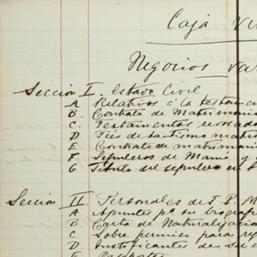 Caja VI
Negocios va
Sección I. Estado Civil
A. Relativos a la testamen
B. Contrato de Matrimonio
C. Testamentos revocado
D. Fees de bautismo matri
E. Contrato de matrimoni
F. Sepulcros de Mamá y
G Título del sepulcro en
Sección II. Personales del S. M
A Apuntes pa. su biograf
B. Carta de Naturalizació
C Sobre permiso para
D. Justificantes de su
E.